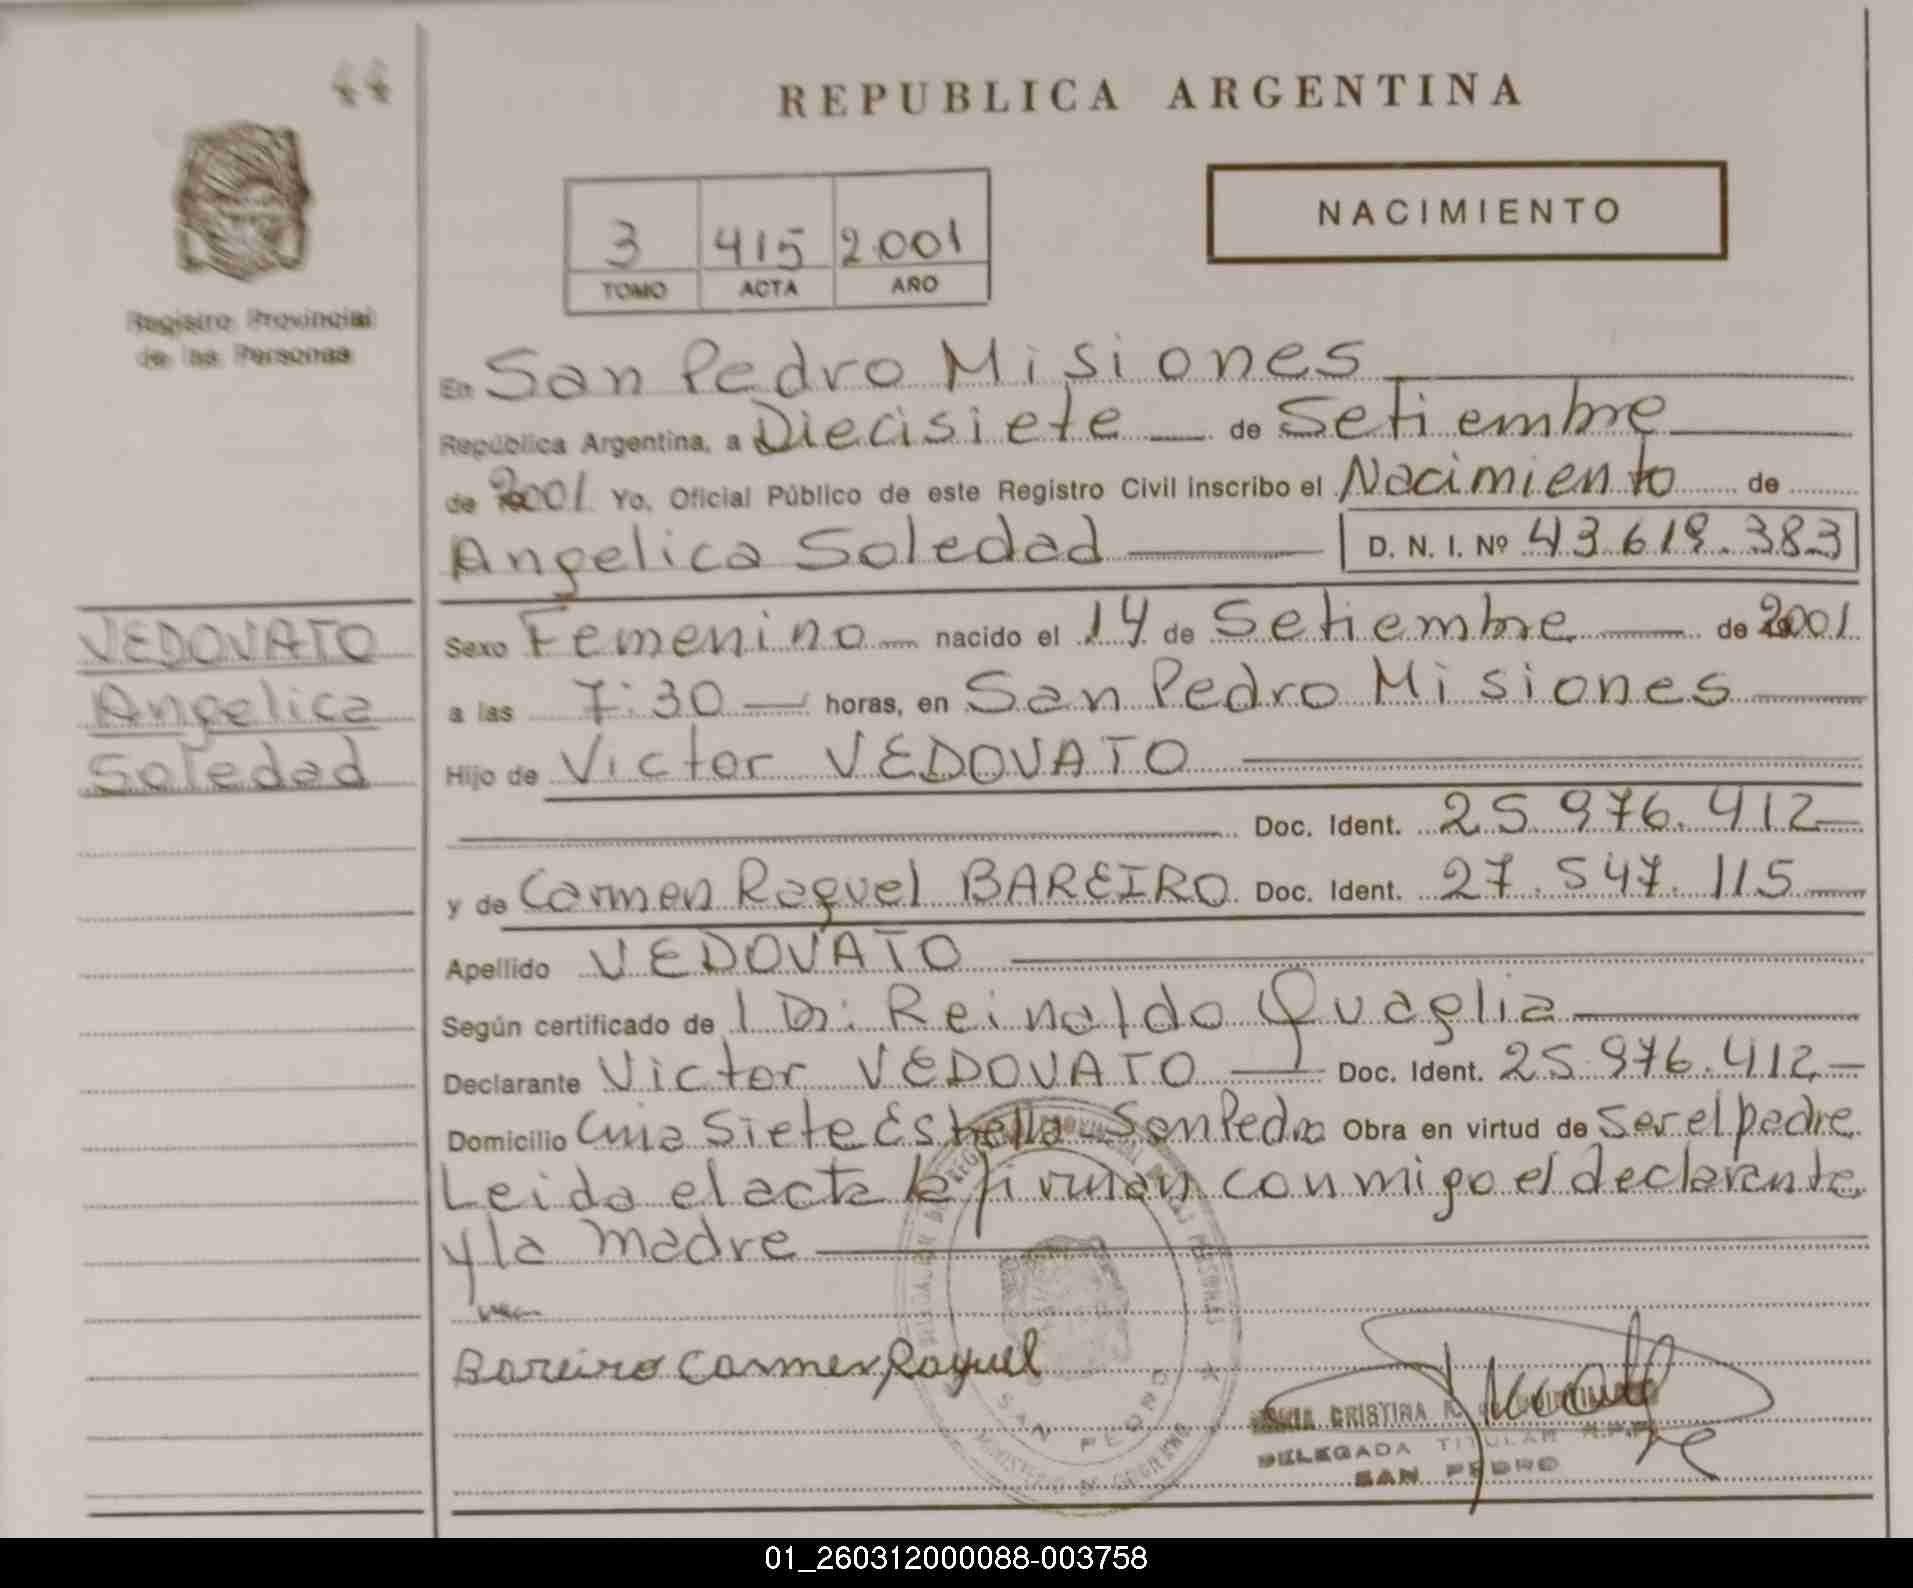 44
REPUBLICA ARGENTINA
NACIMIENTO
3 415 2001
TOMO ACTA AÑO
Registro Provincial
de las Personas
En San Pedro Misiones
República Argentina, a Diecisiete de Setiembre
de 2001 Yo, Oficial Público de este Registro Civil inscribo el Nacimiento de
Angelica Soledad D. N. I. Nº 43.619.383
VEDOVATO
Angelica
Soledad
Sexo Femenino nacido el 14 de Setiembre de 2001
a las 7:30 horas, en San Pedro Misiones
Hijo de Victor VEDOVATO
Doc. Ident. 25.976.412
y de Carmen Raquel BAREIRO Doc. Ident. 27.547.115
Apellido VEDOVATO
Según certificado de Dr: Reinaldo Quaglia
Declarante Victor VEDOVATO Doc. Ident. 25.976.412
Domicilio Cnia Siete Estrella - San Pedro Obra en virtud de Ser el padre
Leida el acta la firman conmigo el declarante
y la madre
Bareiro Carmen Raquel
SAN PEDRO
MINISTERIO DE GOBIERNO
CRISTINA
DELEGADA TITULAR R.P.P.
SAN PEDRO
01_260312000088-003758